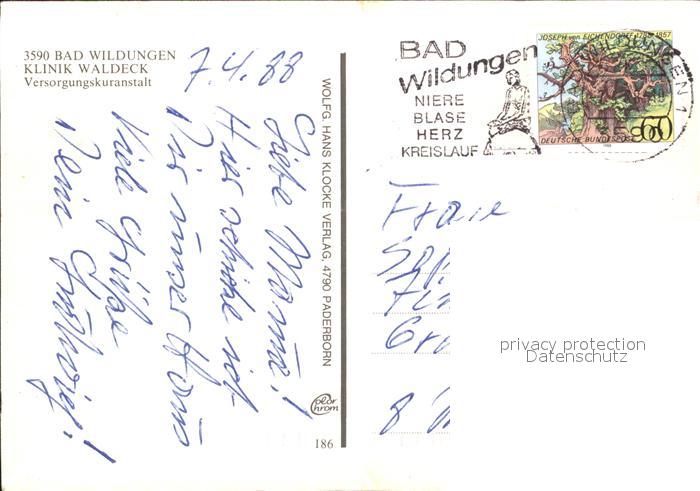 3590 BAD WILDUNGEN
KLINIK WALDECK
Versorgungskuranstalt
7.4.88
Liebe Mama!
Hier schicke ich
Dir unser
Viele Grüße
Dein
WOLFG. HANS KLOCKE VERLAG, 4790 PADERBORN
color
chrom
186
BAD
Wildungen
NIERE
BLASE
HERZ
KREISLAUF
JOSEPH von EICHENDORFF 1788-1857
DEUTSCHE BUNDESPOST
60
WILDUNGEN 1
Frau
8
privacy protection
Datenschutz